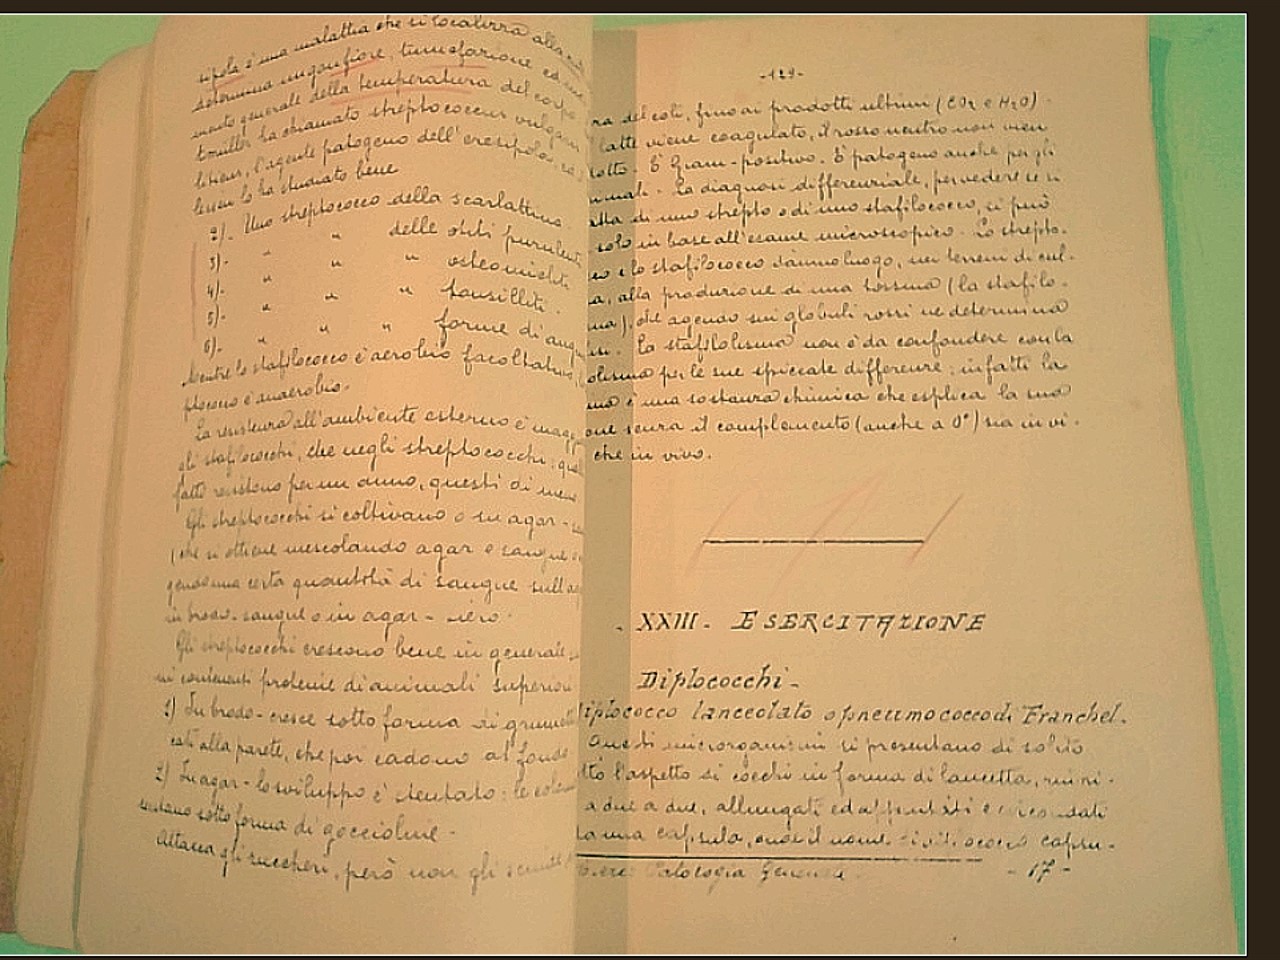 sipola è una malattia che si localizza alla
determina un gonfiore, tumefazione ed
mento generale della temperatura del corpo
ha chiamato streptococcus vulgaris
l'agente patogeno dell'eresipola,
lo ha studiato bene
2)- Uno streptococco della scarlattina.
3)- " " delle otiti purulente
4)- " " " osteomieliti
5)- " " " tonsilliti.
6)- " " " forme di
Mentre lo stafilococco è aerobio facoltativo,
è anaerobio.
La resistenza all'ambiente esterno è
gli stafilococchi, che negli streptococchi:
fatto resistono per un anno, questi di meno
Gli streptococchi si coltivano o su agar-
(che si ottiene mescolando agar e sangue o
una certa quantità di sangue sull'
in brodo-sangue o in agar-siero.
Gli streptococchi crescono bene in generale
ni contenenti proteine di animali superiori
1) In brodo-cresce sotto forma di grumetti
alla parete, che poi cadono al fondo
2) In agar-lo sviluppo è stentato: le
sotto forma di goccioline-
Attacca gli zuccheri, però non gli
-129-
del coli, fino ai prodotti ultimi (CO2 e H2O).
latte viene coagulato, il rosso neutro non vien
E' Gram-positivo. E' patogeno anche per gli
La diagnosi differenziale, per vedere se si
di uno strepto o di uno stafilococco, si può
solo in base all'esame microscopico. Lo strepto-
e lo stafilococco danno luogo, nei terreni di cul-
a, alla produzione di una tossina (la stafilo-
), che agendo sui globuli rossi ne determina
La stafilolisina non è da confondere con la
per le sue spiccate differenze: infatti la
è una sostanza chimica che esplica la sua
senza il complemento (anche a 0°) sia in vi-
che in vivo.
XXIII- ESERCITAZIONE
Diplococchi-
iplococco lanceolato o pneumococco di Franchel.
Questi microrganismi si presentano di solito
tto l'aspetto si cocchi in forma di lancetta, riuni-
a due a due, allungati ed appuntiti e circondati
da una capsula, onde il nome di diplococco capsu-
Patologia Generale - 17 -